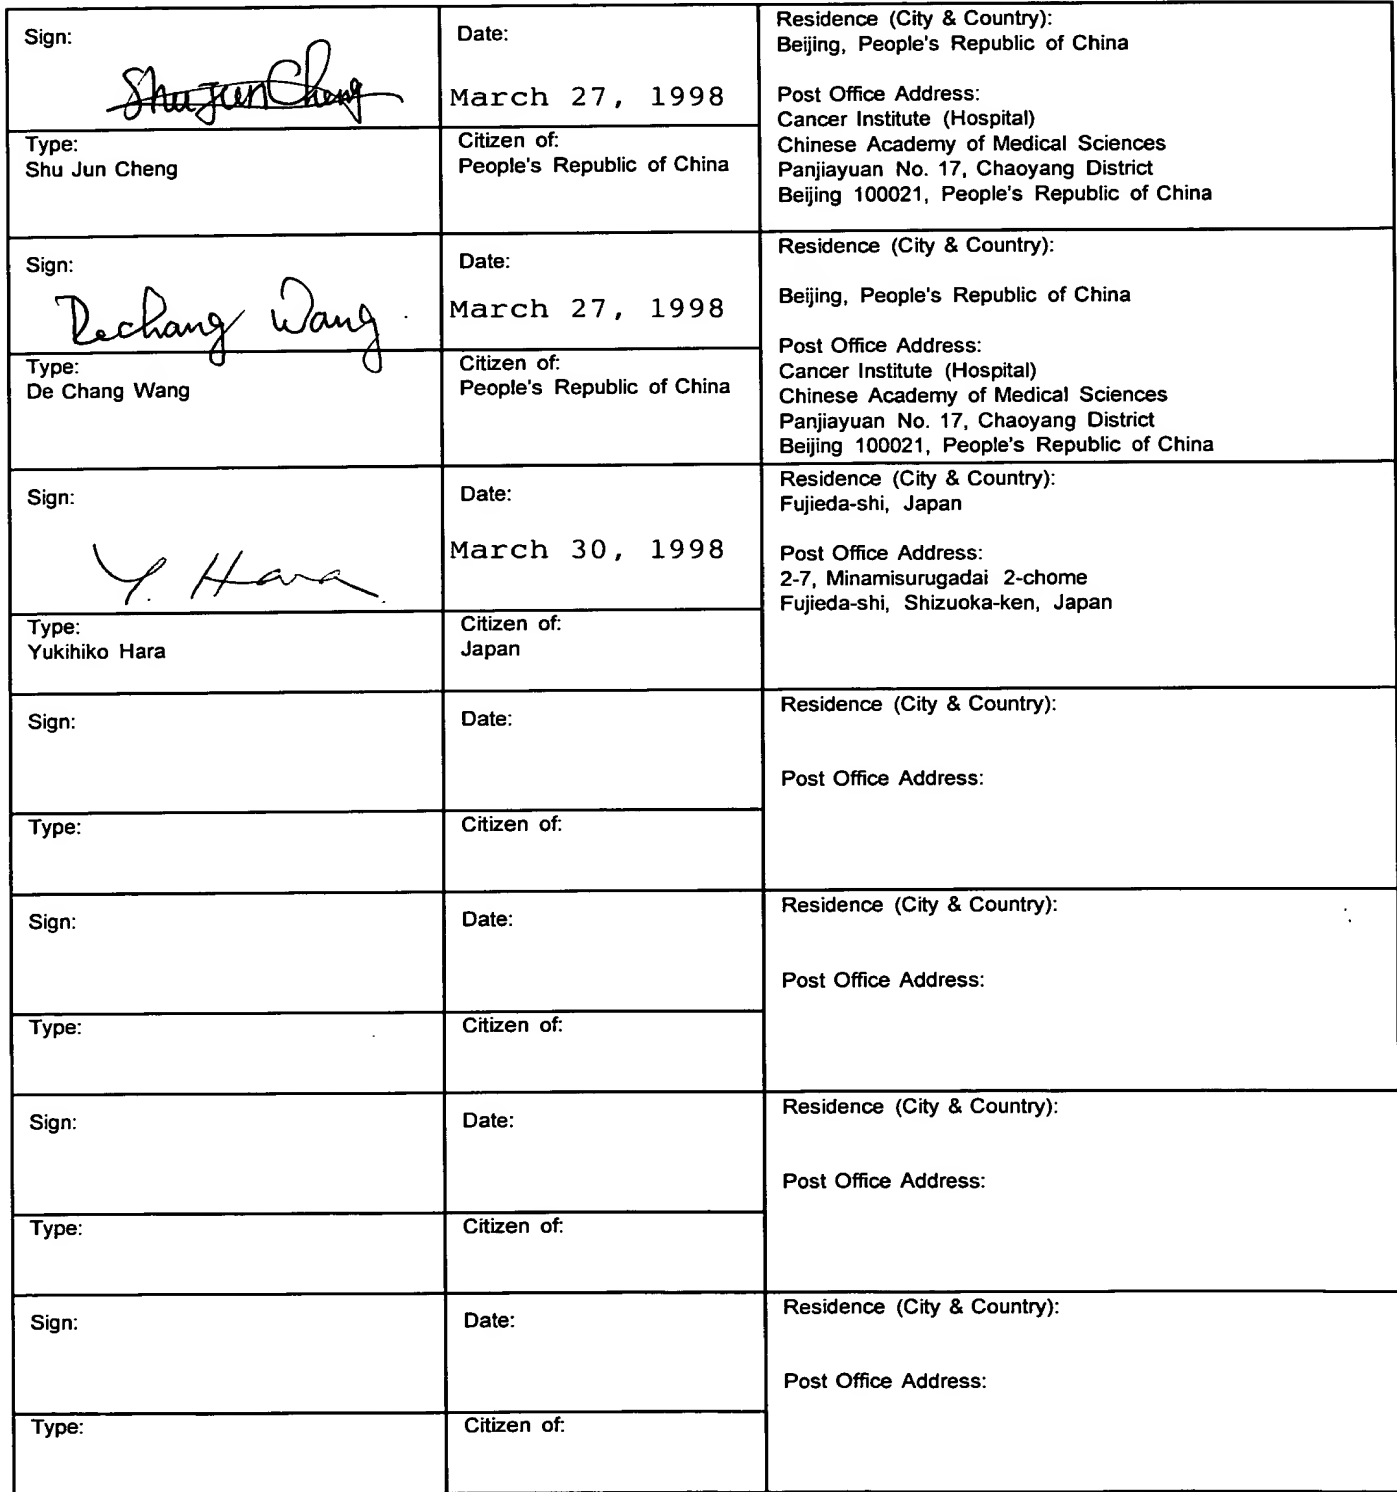 Sign:
Shu Jun Cheng
Date:
March 27, 1998
Residence (City & Country):
Beijing, People's Republic of China
Post Office Address:
Cancer Institute (Hospital)
Chinese Academy of Medical Sciences
Panjiayuan No. 17, Chaoyang District
Beijing 100021, People's Republic of China
Type:
Shu Jun Cheng
Citizen of:
People's Republic of China
Sign:
Dechang Wang
Date:
March 27, 1998
Residence (City & Country):
Beijing, People's Republic of China
Post Office Address:
Cancer Institute (Hospital)
Chinese Academy of Medical Sciences
Panjiayuan No. 17, Chaoyang District
Beijing 100021, People's Republic of China
Type:
De Chang Wang
Citizen of:
People's Republic of China
Sign:
Y. Hara
Date:
March 30, 1998
Residence (City & Country):
Fujieda-shi, Japan
Post Office Address:
2-7, Minamisurugadai 2-chome
Fujieda-shi, Shizuoka-ken, Japan
Type:
Yukihiko Hara
Citizen of:
Japan
Sign:
Date:
Residence (City & Country):
Post Office Address:
Type:
Citizen of:
Sign:
Date:
Residence (City & Country):
Post Office Address:
Type:
Citizen of:
Sign:
Date:
Residence (City & Country):
Post Office Address:
Type:
Citizen of:
Sign:
Date:
Residence (City & Country):
Post Office Address:
Type:
Citizen of: